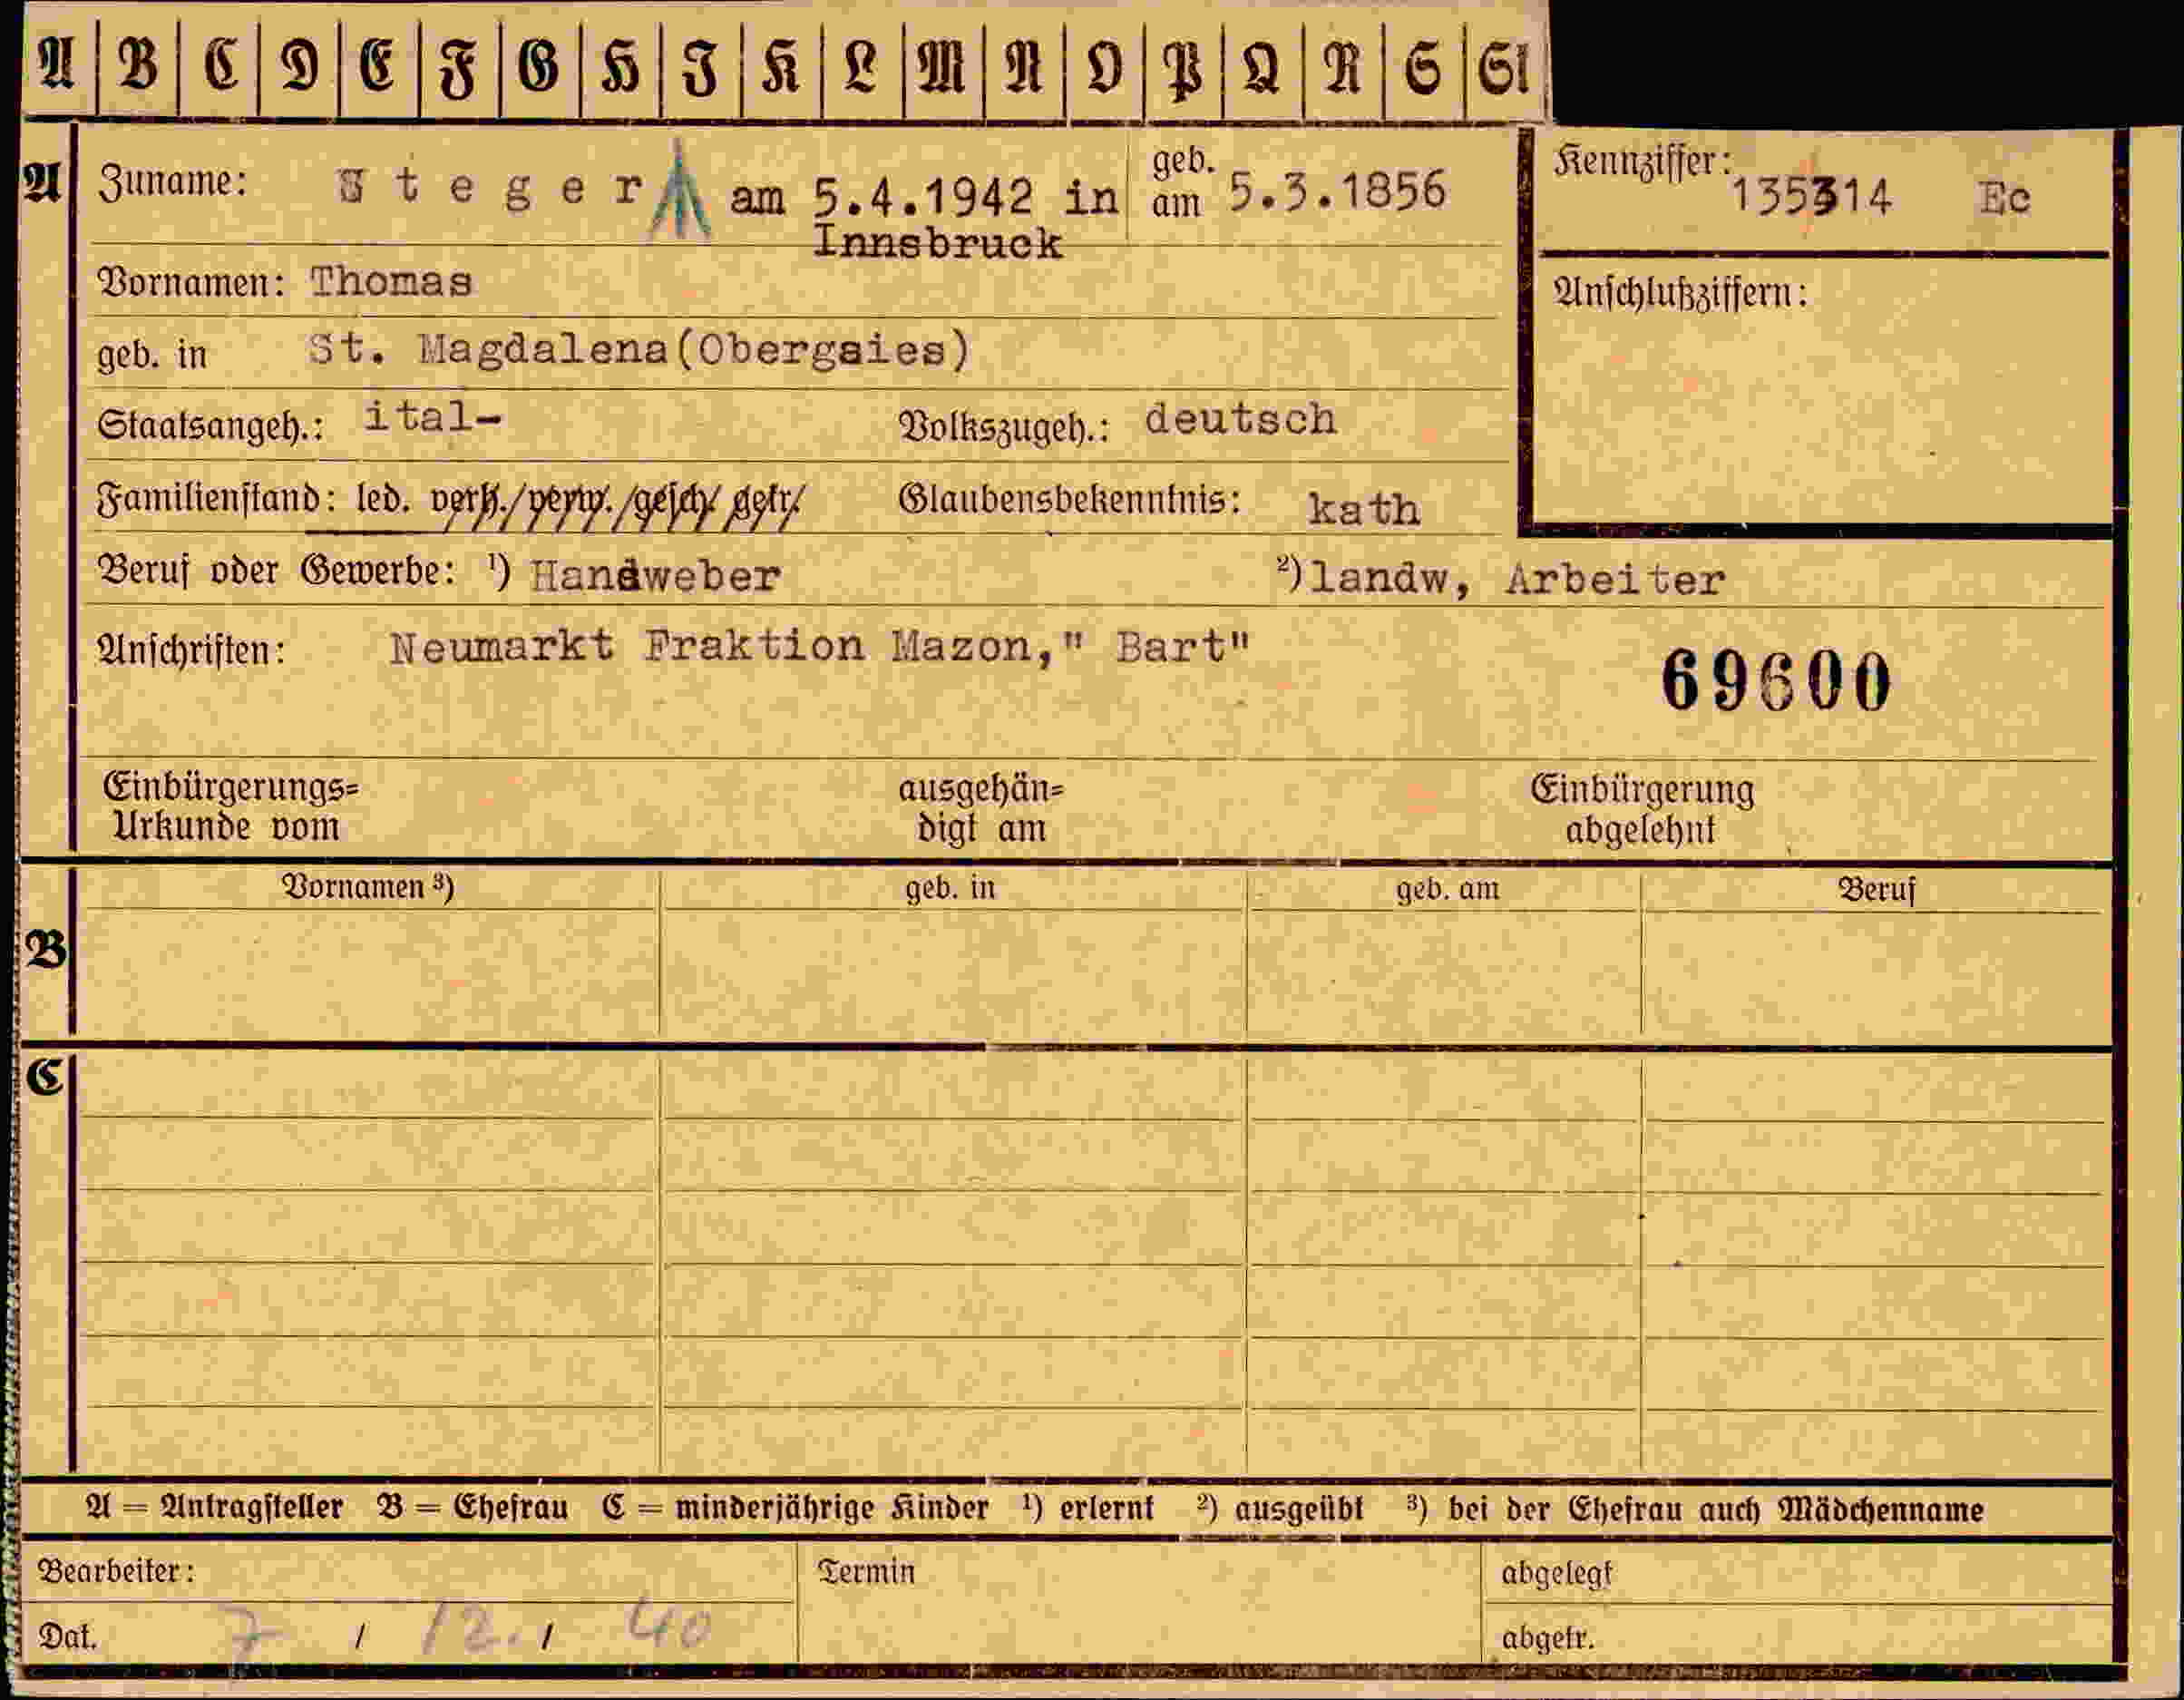 A B C D E F G H I K L M N O P Q R S St
A Zuname: Steger am 5.4.1942 in geb. am 5.3.1856 Kennziffer: 135314 Ec
Innsbruck
Vornamen: Thomas
Anschlußziffern:
geb. in St. Magdalena(Obergsies)
Staatsangeh.: ital- Volkszugeh.: deutsch
Familienstand: led. verh./verw./gesch/ getr/ Glaubensbekenntnis: kath
Beruf oder Gewerbe: ¹) Handweber ²)landw, Arbeiter
Anschriften: Neumarkt Fraktion Mazon," Bart"
69600
Einbürgerungs= ausgehän= Einbürgerung
Urkunde vom digt am abgelehnt
Vornamen ³) geb. in geb. am Beruf
B
C
A = Antragsteller B = Ehefrau C = minderjährige Kinder ¹) erlernt ²) ausgeübt ³) bei der Ehefrau auch Mädchenname
Bearbeiter: Termin abgelegt
Dat. 7 / 12. / 40 abgetr.